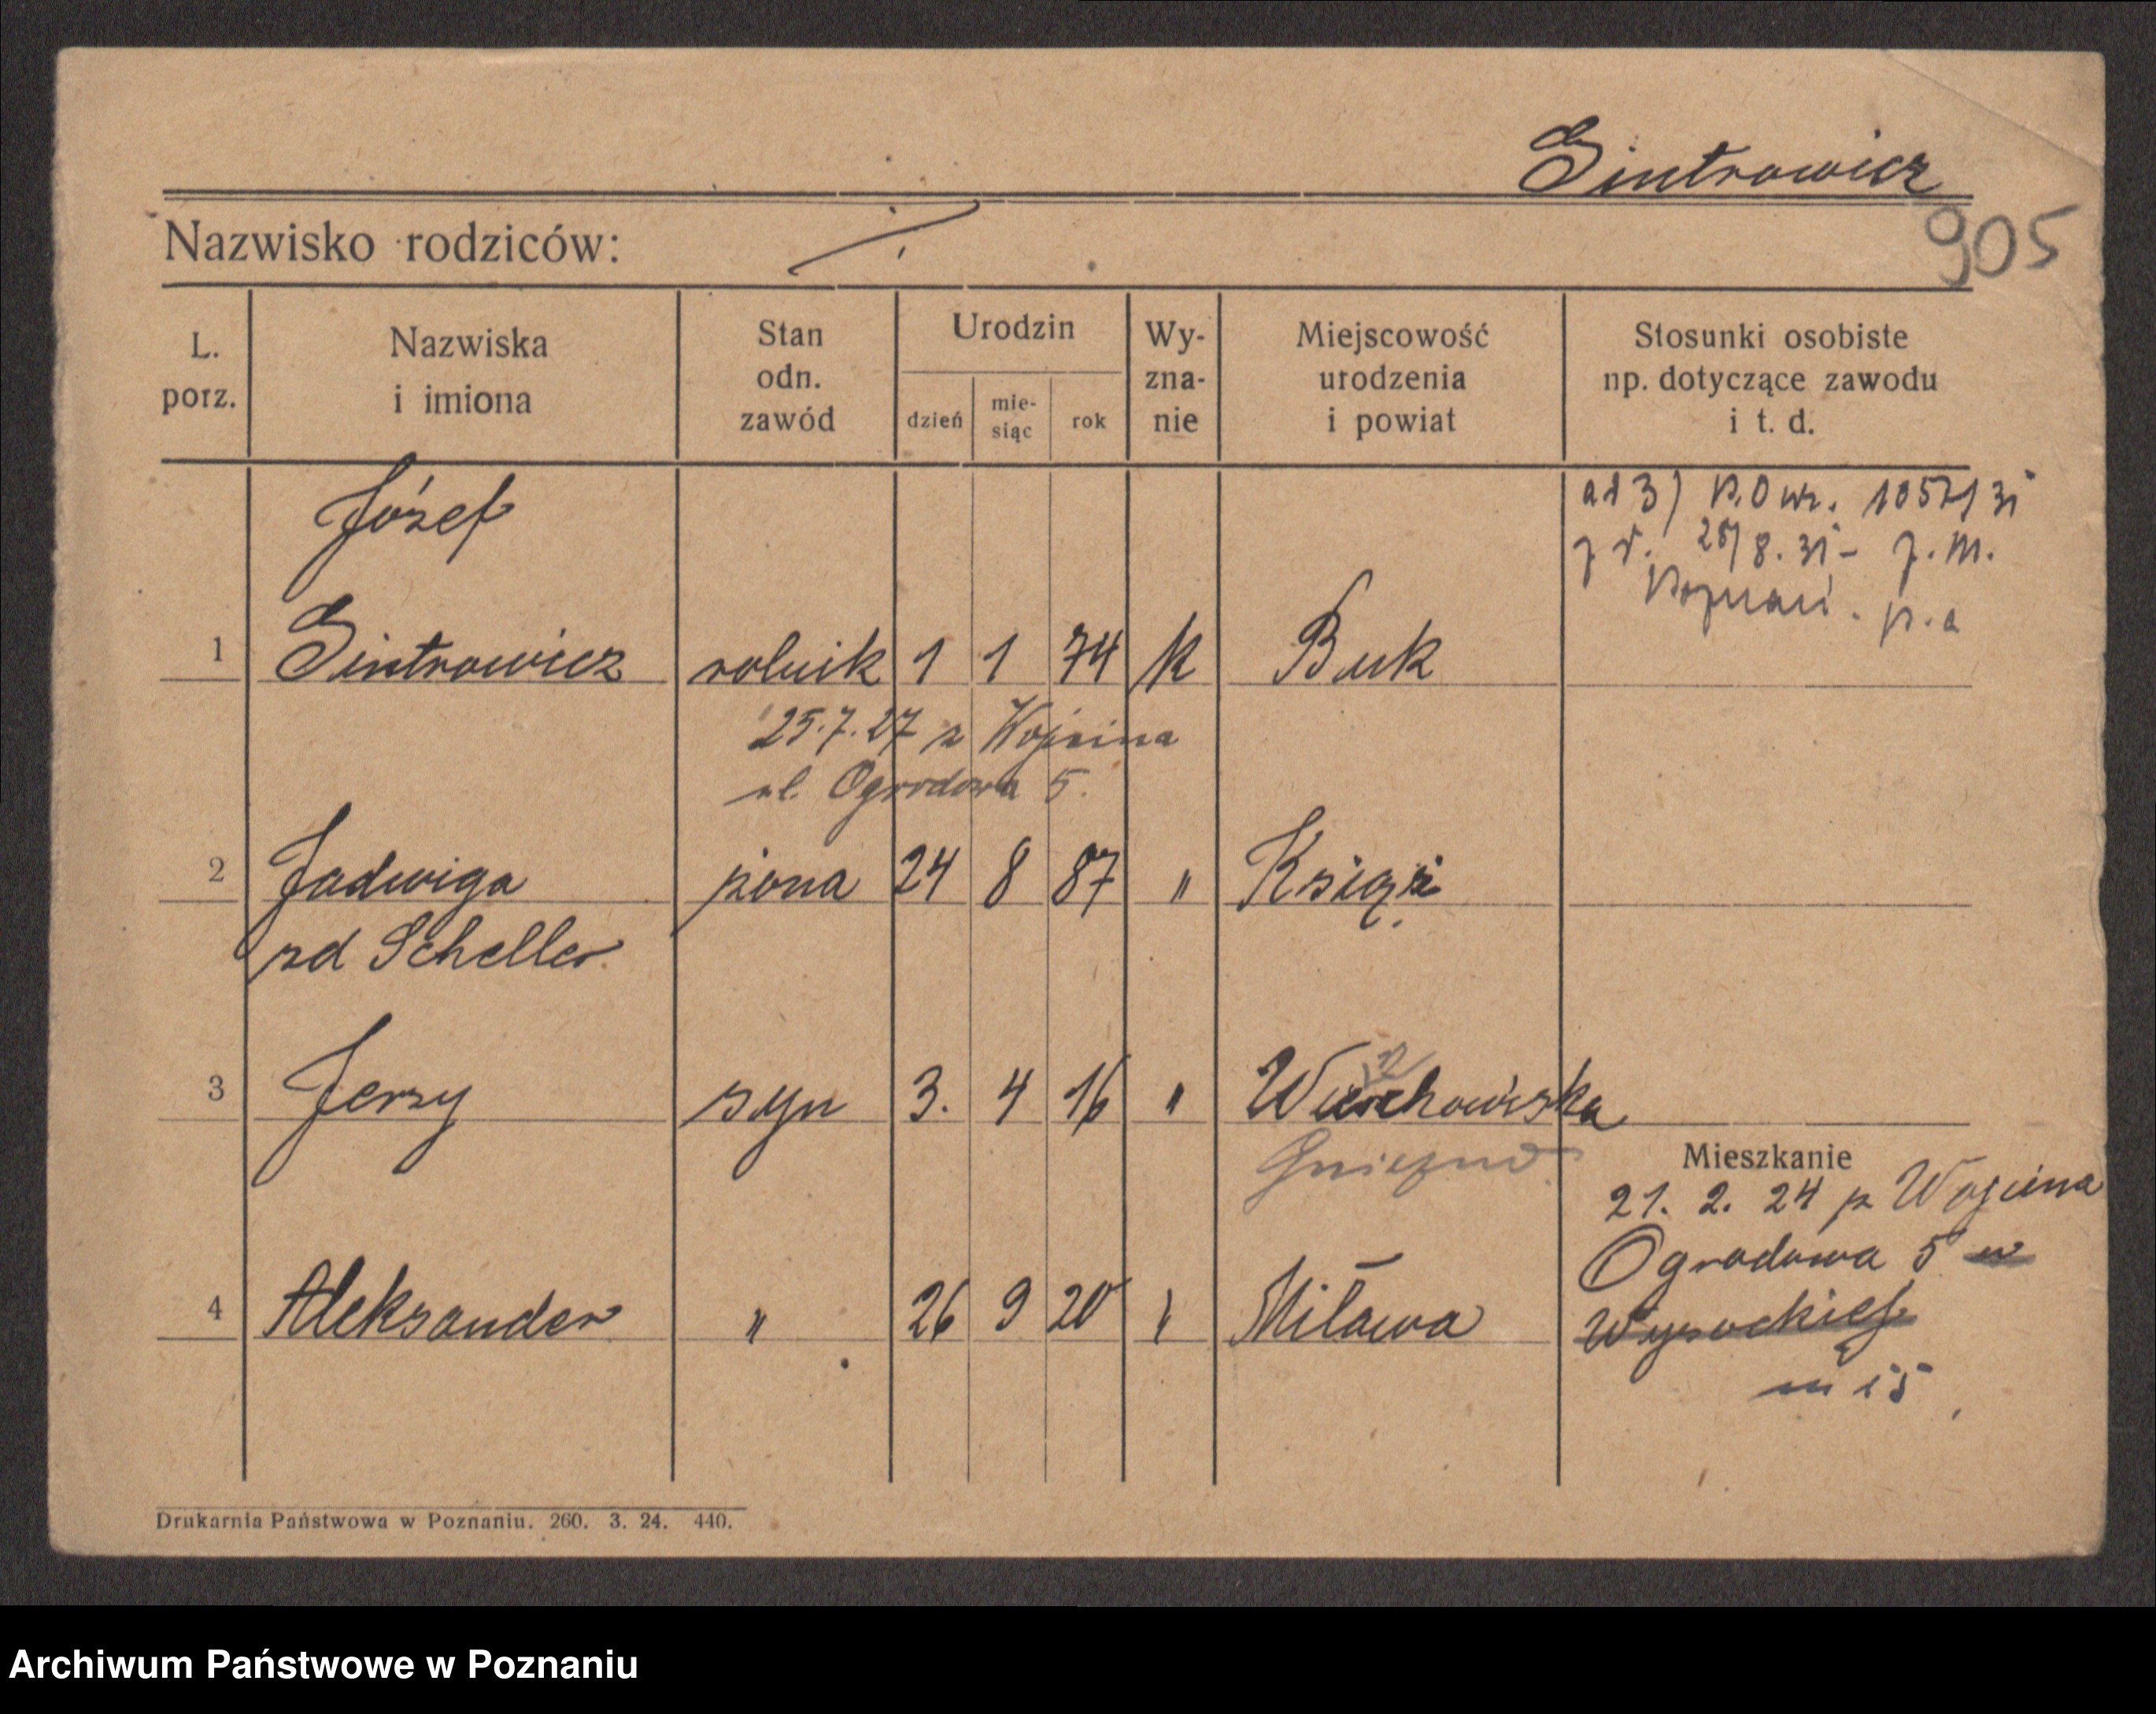 Sintrowicz
905
Nazwisko rodziców:
L. porz.
Nazwiska i imiona
Stan odn. zawód
Urodzin
dzień
mie- siąc
rok
Wy- zna- nie
Miejscowość urodzenia i powiat
Stosunki osobiste np. dotyczące zawodu i t. d.
ad 3)
28/8.31 -
Poznań.
Józef
1 Sintrowicz rolnik 1 1 74 k Buk
25.7.27 z Wójcina
ul. Ogrodowa 5.
2 Jadwiga żona 24 8 87 " Książ
zd Scheller
3 Jerzy syn 3. 4 16 "
Gniezno
Mieszkanie
21. 2. 24 z Wojcina
Ogrodowa 5 w
Wysockiej
m 15
4 Aleksander " 26 9 20 " Miława
Drukarnia Państwowa w Poznaniu. 260. 3. 24. 440.
Archiwum Państwowe w Poznaniu